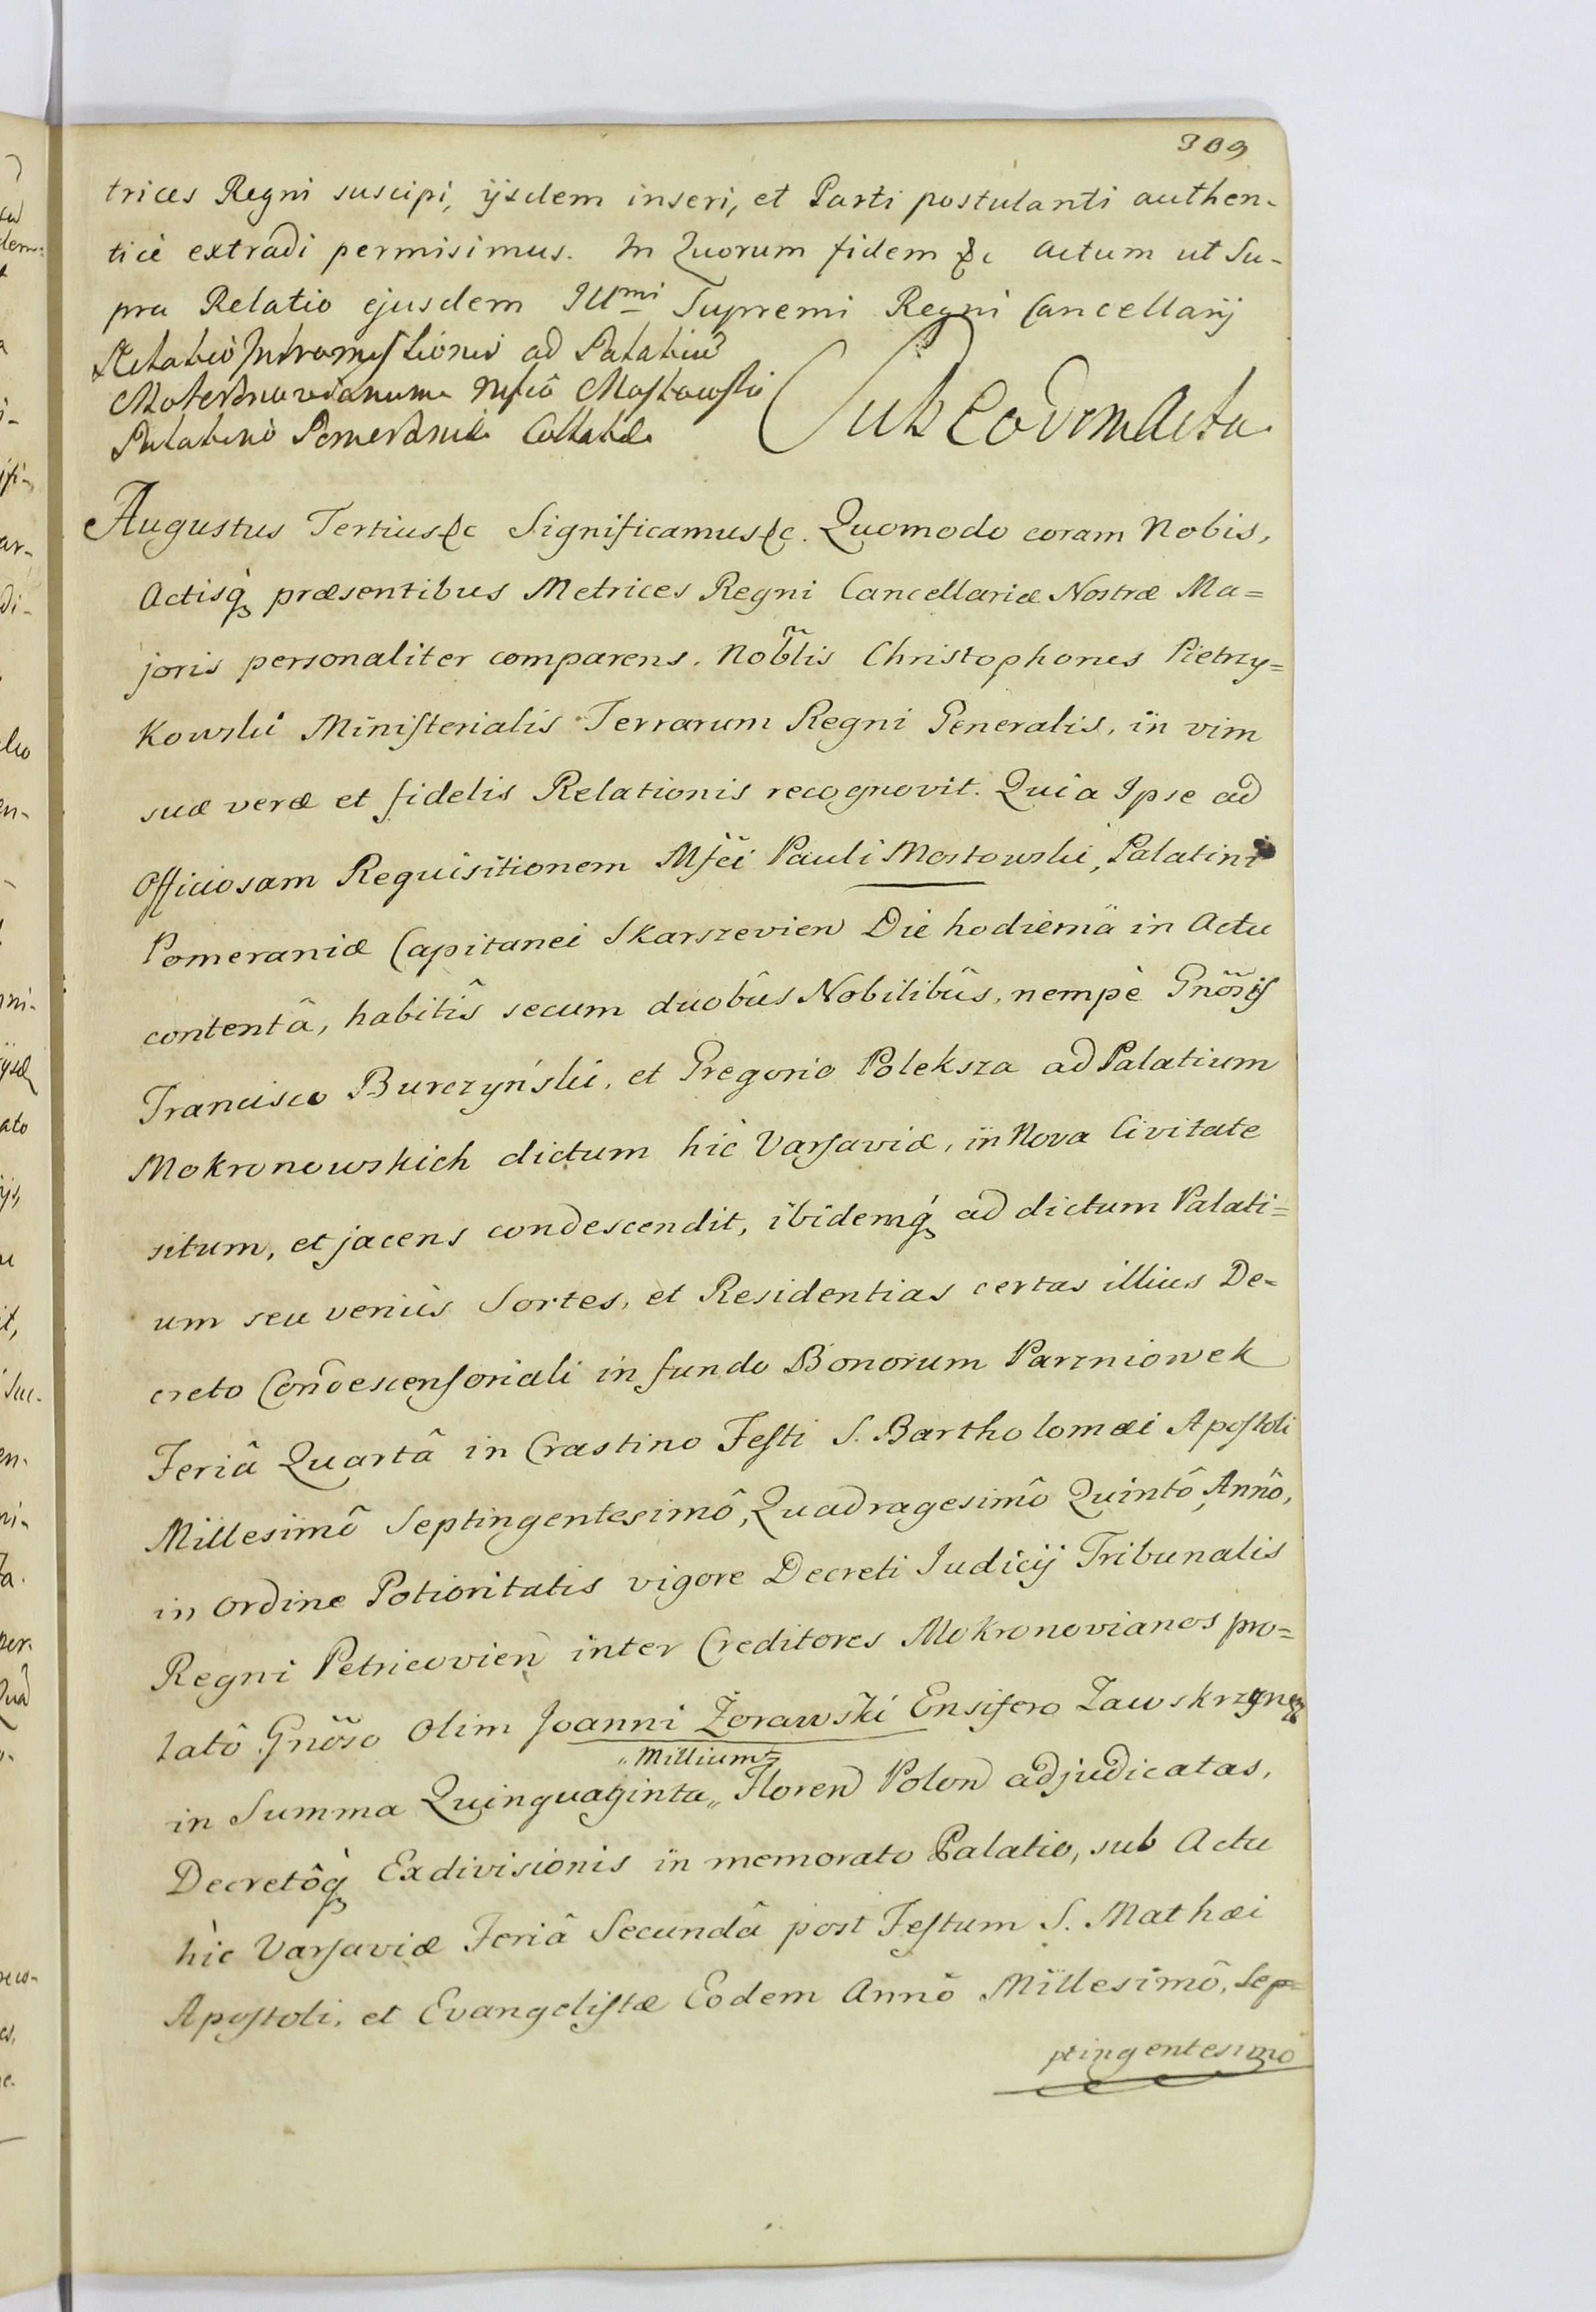 309
trices Regni suscipi, ijsdem inseri, et Parti postulanti authen-
ticè extradi permisimus. In Quorum fidem &c Actum ut Su-
pra Relatio ejusdem Illmi Supremi Regni Cancellarij
Relatio Intromissionis ad Palatiu
Mokronovianum Mfco Mostowski
Palatino Pomeraniæ Collatæ
Sub Eodem Actu
Augustus Tertius &c Significamus &c. Quomodo coram Nobis,
Actisq præsentibus Metrices Regni Cancellariæ Nostræ Ma=
joris personaliter comparens. Nobĩlis Christophorus Pietrzy=
Kowski Ministerialis Terrarum Regni Generalis, in vim
suæ veræ et fidelis Relationis recognovit. Quia Ipse ad
Officiosam Requisitionem Mfci Pauli Mostowski, Palatini
Pomeraniæ Capitanei Skarszevien Die hodierna in Actu
contentâ, habitis secum duobûs Nobilibûs, nempè Gnõsis
Francisco Burczyński, et Gregorio Poleksza ad Palatium
Mokronowskich dictum hic Varsaviæ, in Nova Civitate
situm, et jacens condescendit, ibidemq ad dictum Palati=
um seu veriùs Sortes, et Residentias certas illius De-
creto Condescensoriali in fundo Bonorum Parzniowek
Feriâ Quartâ in Crastino Festi S. Bartholomæi Apostoli
Millesimô Septingentesimô, Quadragesimô Quintô Annô,
in Ordine Potioritatis vigore Decreti Iudicij Tribunalis
Regni Petricovien inter Creditores Mokronovianos pro=
latô Gnõso Olim Joanni Żorawski Ensifero Zawskrzynen
"Millium"
in Summa Quinquaginta" Floren Polon adjudicatas,
Decretôq Exdivisionis in memorato Palatio, sub Actu
hìc Varsaviæ Feriâ Secundâ post Festum S. Mathæi
Apostoli, et Evangelistæ Eodem Annô Millesimô, Sep=
ptingentesimo